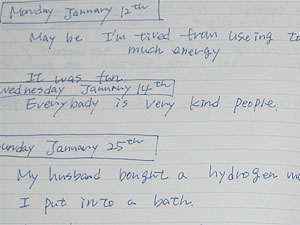 Monday January 12th
May be I'm tired from useing to
much energy
It was fun.
Wednesday January 14th
Everybady is very kind people.
unday January 25th
My husband bought a hydrogen
I put into a bath.